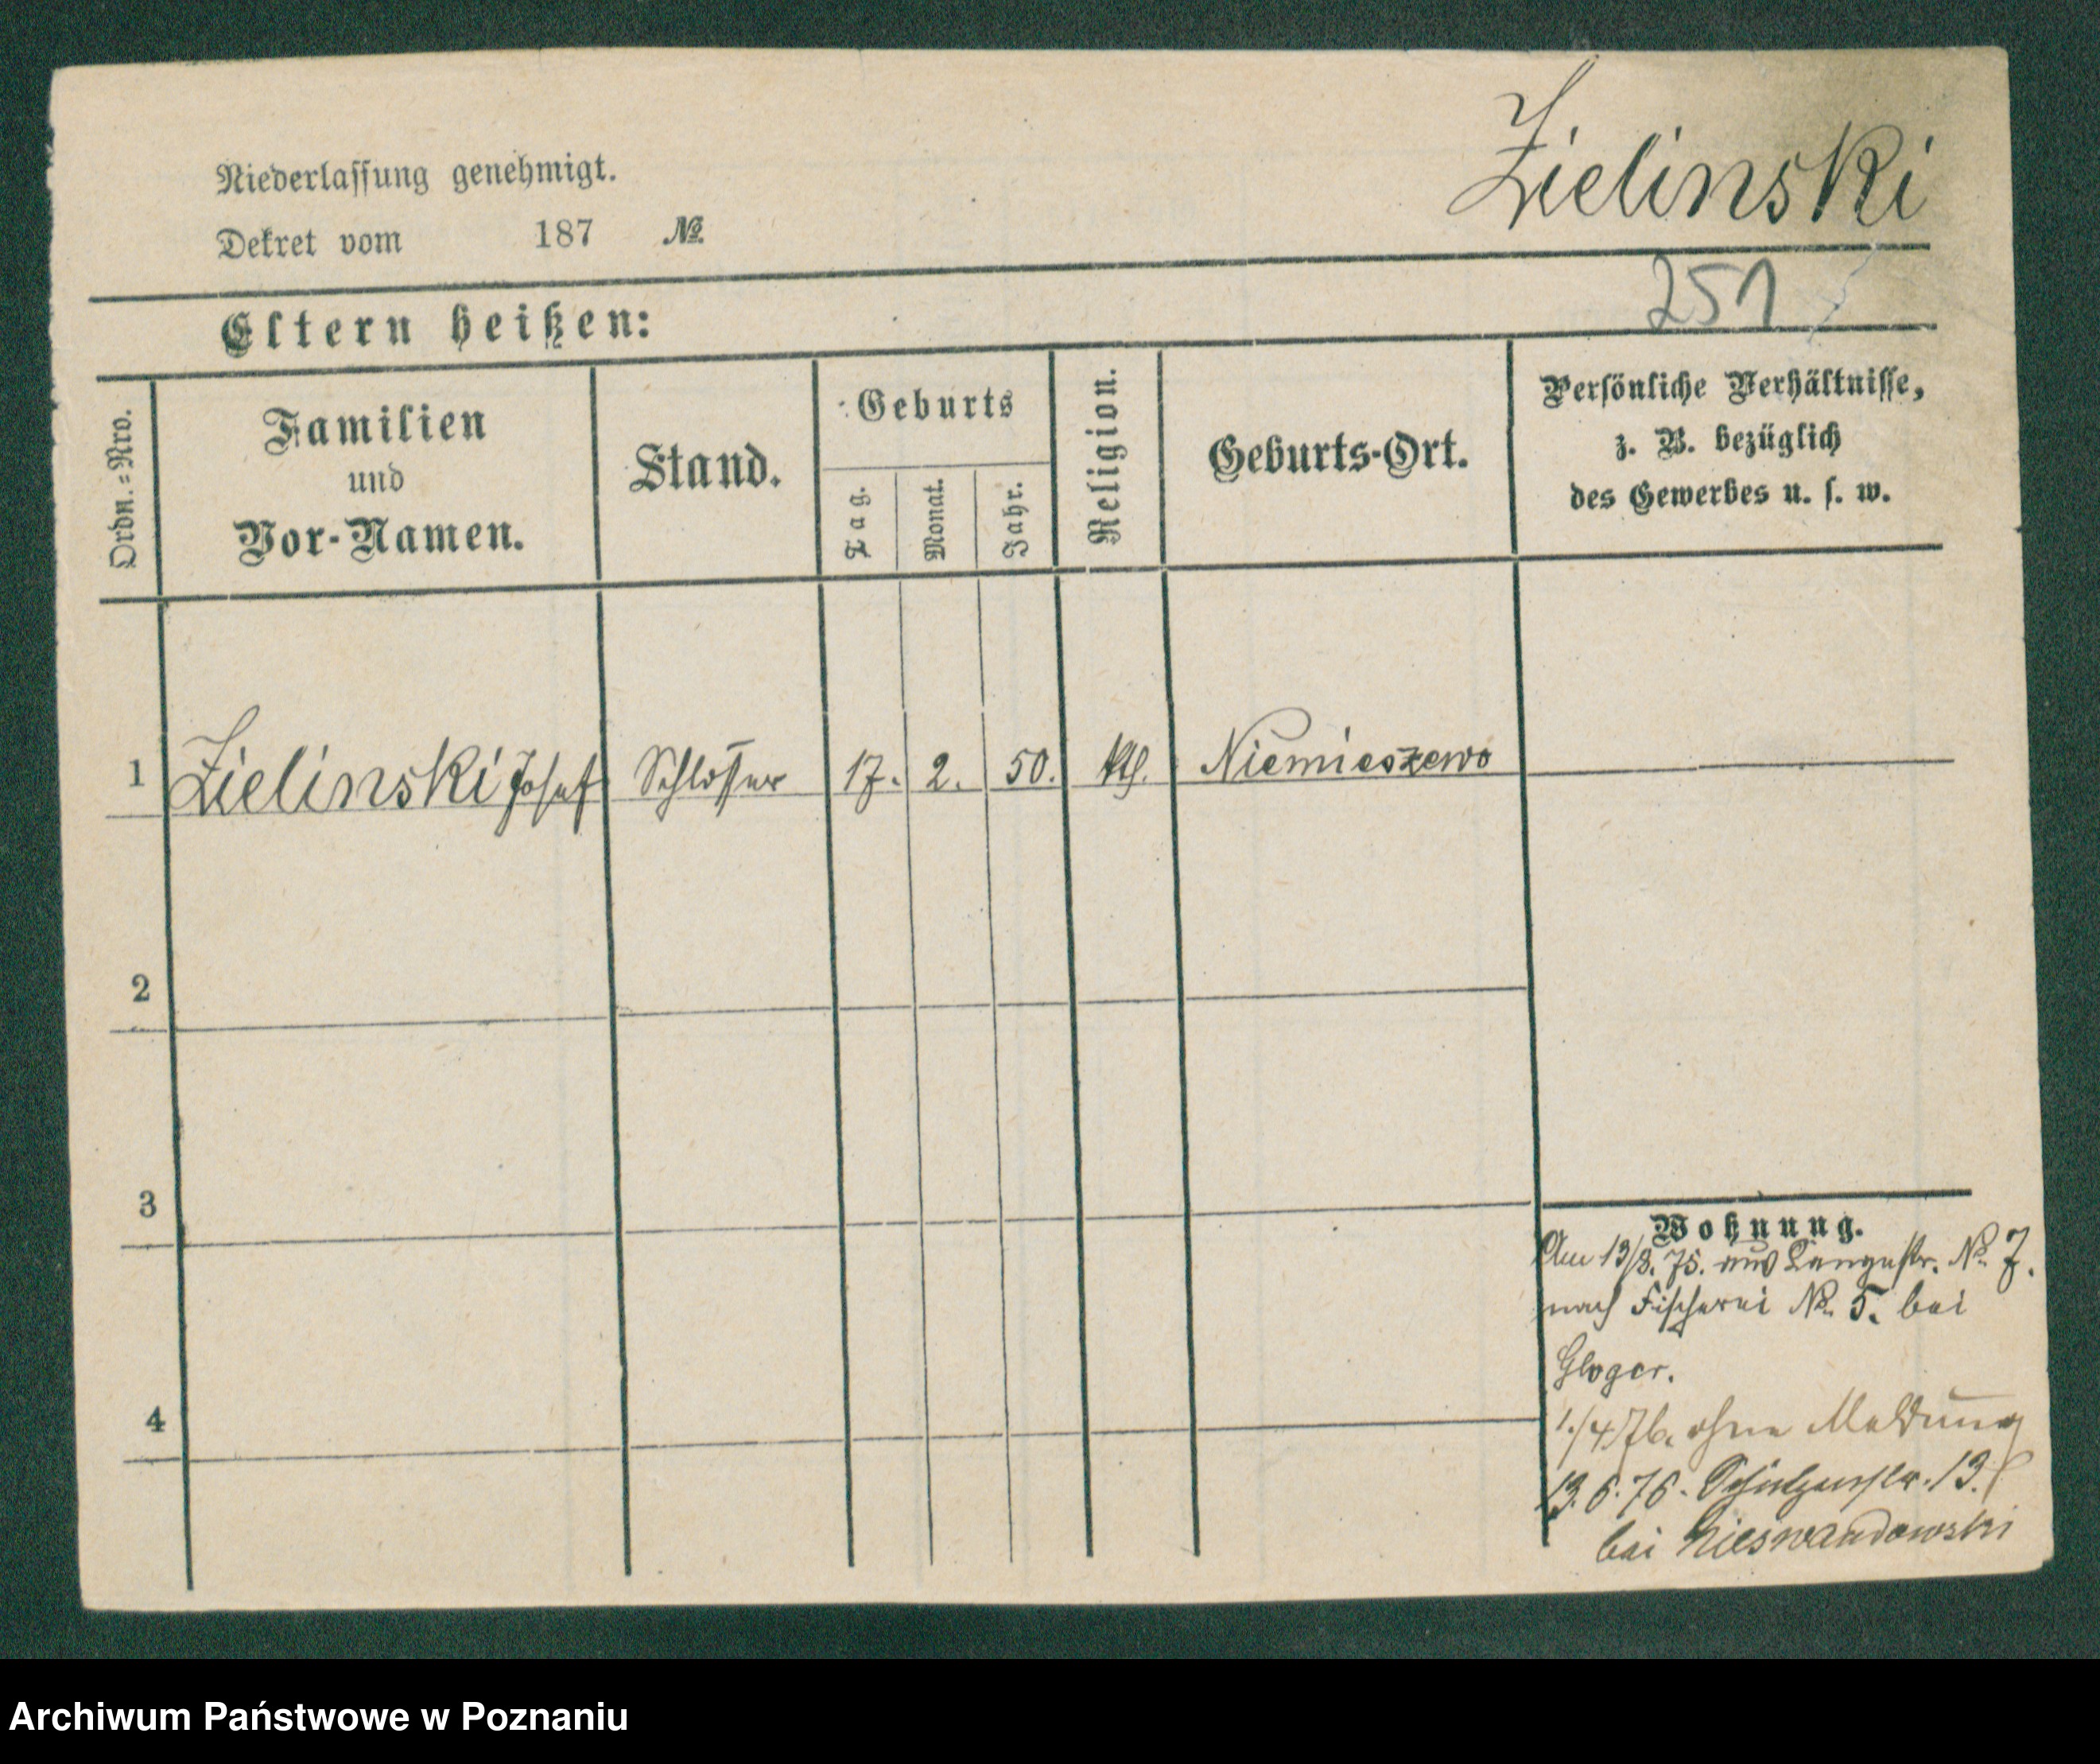 Zielinski
Niederlassung genehmigt.
Dekret vom 187 №
251
Eltern heißen:
Ordn.=Nro.
Familien
und
Vor-Namen.
Stand.
Geburts
Tag.
Monat.
Jahr.
Religion.
Geburts-Ort.
Persönliche Verhältnisse,
z. B. bezüglich
des Gewerbes u. s. w.
1 Zielinski Josef Schlosser 17. 2. 50. kth. Niemieszewo
2
3
4
Wohnung.
Am 13/8. 75. aus Langestr. No. 7.
nach Fischerei No. 5. bei
Gloger.
1./4 76. ohne Meldung
13. 6. 76. Schützenstr. 13.
bei Nieswandowski
Archiwum Państwowe w Poznaniu